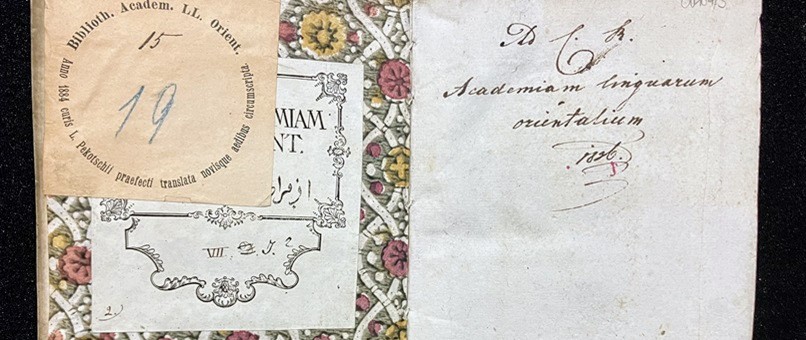 Biblioth. Academ. LL. Orient.
Anno 1884 curis L. Pekotschii praefecti translata novisque aedibus circumscripta.
15
19
MIAM
NT.
VIII
J. 2
2)
Ad C. R.
Academiam linguarum
orientalium
1826.